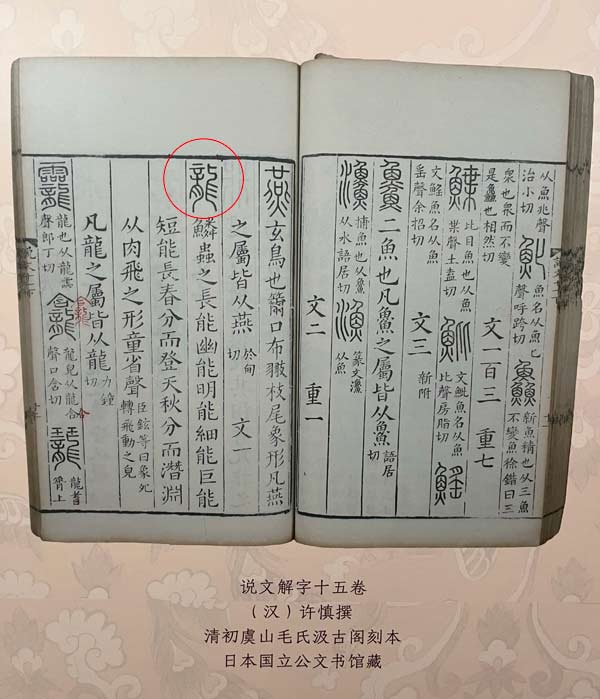 从魚兆聲治小切 魤 魚名从魚匕聲呼跨切 鱻 新魚精也从三魚不變魚徐鍇曰三
衆也衆而不變是鱻也相然切 文一百三 重七
鰈 比目魚也从魚枼聲土盍切 魮 文魮魚名从魚比聲房脂切 鰩
文鰩魚名从魚䍃聲余招切 文三 新附
𩺰 二魚也凡𩺰之屬皆从𩺰 語居切
捕魚也从𩺰从水語居切 漁 篆文从魚
文二 重一
燕 玄鳥也籋口布翄枝尾象形凡燕
之屬皆从燕 於甸切 文一
龍 鱗蟲之長能幽能明能細能巨能
短能長春分而登天秋分而潛淵
从肉飛之形童省聲 臣鉉等曰象夗轉飛動之皃
凡龍之屬皆从龍 力鍾切
龗 龍也从龍霝聲郎丁切 龕 龍皃从龍合聲口含切 龍耆脊上
说文解字十五卷
（汉）许慎撰
清初虞山毛氏汲古阁刻本
日本国立公文书馆藏